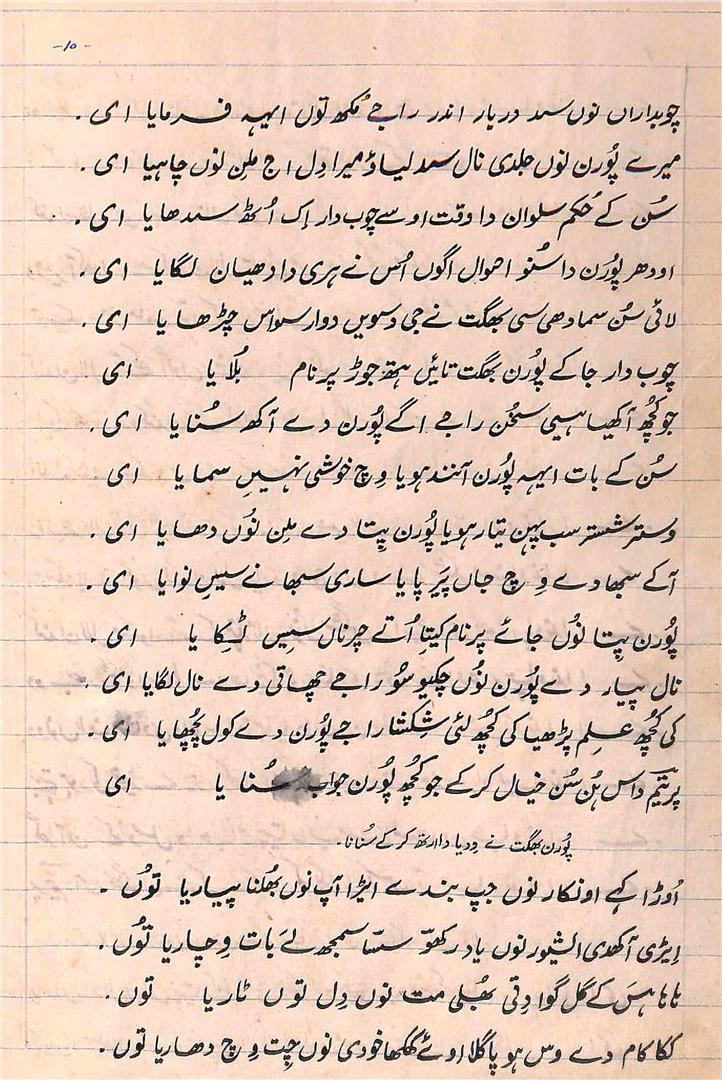 -۱۰-
چوبداراں نوں سد دربار اندر راجے مُکھ توں ایہہ فرمایا ای۔
میرے پُورن نوں جلدی نال سد لیاؤ میرا دِل اج مِلن نوں چاہیا ای۔
سُن کے حُکم سلوان دا وقت اوسے چوب دار اِک اُٹھ سدھایا ای۔
اودھر پُورن دا سُنو احوال اگوں اُس نے ہری دا دھیان لگایا ای۔
لائی سُن سمادھی سی بھگت نے جی دسویں دوار سواس چڑھایا ای۔
چوب دار جا کے پُورن بھگت تائیں ہتھ جوڑ پرنام بُلایا ای
جو کُچھ آکھیا ہیسی سخُن راجے اگے پُورن دے آکھ سُنایا ای۔
سُن کے بات ایہہ پُورن آنند ہویا وِچ خوشی نہیں سمایا ای
وستر شستر سب پہن تیار ہویا پُورن پِتا دے مِلن نوُں دھایا ای۔
آکے سبھا دے وِچ جاں پَیر پایا ساری سبھا نے سیس نوایا ای۔
پُورن پِتا نوُں جائے پرنام کیتا اُتے چرناں سیس ٹِکایا ای۔
نال پیار دے پُورن نوُں چکیو سُو راجے چھاتی دے نال لگایا ای۔
کی کُچھ عِلم پڑھیا کی کُچھ لئی شِکشا راجے پُورن دے کول پُچھایا ای۔
پریتم داس ہُن سُن خیال کر کے جو کُچھ پُورن جواب سُنایا ای
پُورن بھگت نے وِدیا دا ارتھ کر کے سُنانا۔
اُوڑا کہے اونکار نوں جپ بندے ایڑا آپ نوں بھُلنا پیاریا توُں۔
اِیڑی آکھدی ایشور نوں یاد رکھو سسّا سمجھ لَے بات وِچاریا توُں۔
ہاہا ہس کے گل گوا دِتی بھُلی مت نوں دِل توں ٹاریا توں۔
ککا کام دے وس ہو پاگلا اوئے کھکھا خودی نوں چِت وِچ دھاریا توں۔